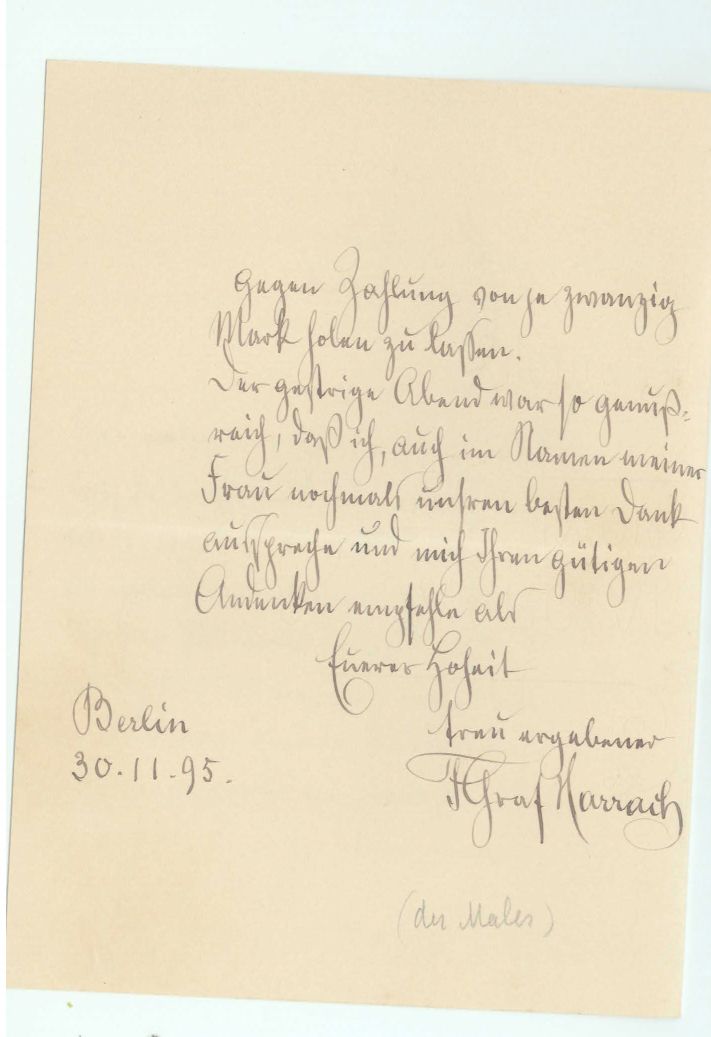 gegen Zahlung von je zwanzig
Mark holen zu lassen.
Der gestrige Abend war so genuß-
reich, daß ich, auch im Namen meiner
Frau nochmals unsren besten Dank
ausspreche und mich Ihren gütigen
Andenken empfehle als
Euerer Hoheit
treu ergebener
FGraf Harrach
Berlin
30.11.95.
(der Maler)